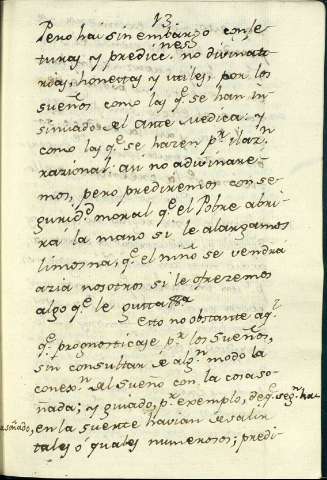 13.
Pero hai sin embargo conje
turas y predicc.nes no divinato
rias, honestas y utiles, por los
sueños como las q.e se han in
sinuado del Arte Medica: y
como las q.e se hazen p.r ilaz.n
razional: asi no adivinare
mos, pero prediremos con se
gurid.d moral q.e el Pobre abri
rá la mano si le alargamos
limosna, q.e el niño se vendra
azia nosotros si le ofrezemos
algo q.e le gusta
Esto no obstante aq.l
q.e prognosticase p.r los sueños,
sin consultar de alg.n modo la
conex.n del sueño con la cosa so-
ñada; y guiado, p.r exemplo, de q.e seg.n ha
soñado, en la suerte havian de salir
tales ó quales numeros; predi-